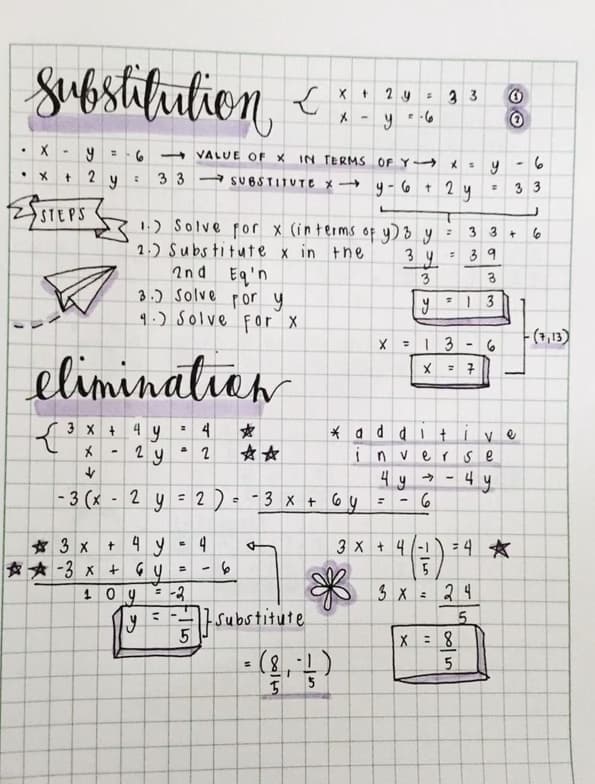 substitution { x + 2y = 33 ①
x - y = -6 ②
• x - y = -6 → VALUE OF X IN TERMS OF Y → x = y - 6
• x + 2y = 33 → SUBSTITUTE X → y - 6 + 2y = 33
STEPS
1.) Solve for x (in terms of y)
2.) Substitute x in the
2nd Eq'n
3.) Solve for y
4.) Solve for x
3y = 33 + 6
3y = 39
3 3
y = 13
x = 13 - 6
x = 7
(7,13)
elimination
{ 3x + 4y = 4 ☆
x - 2y = 2 ☆☆
↓
* additive
inverse
4y → -4y
-3(x - 2y = 2) = -3x + 6y = -6
☆ 3x + 4y = 4
☆☆ -3x + 6y = -6
10y = -2
y = -1/5 } substitute
3x + 4(-1/5) = 4 ★
3x = 24/5
x = 8/5
= (8/5, -1/5)